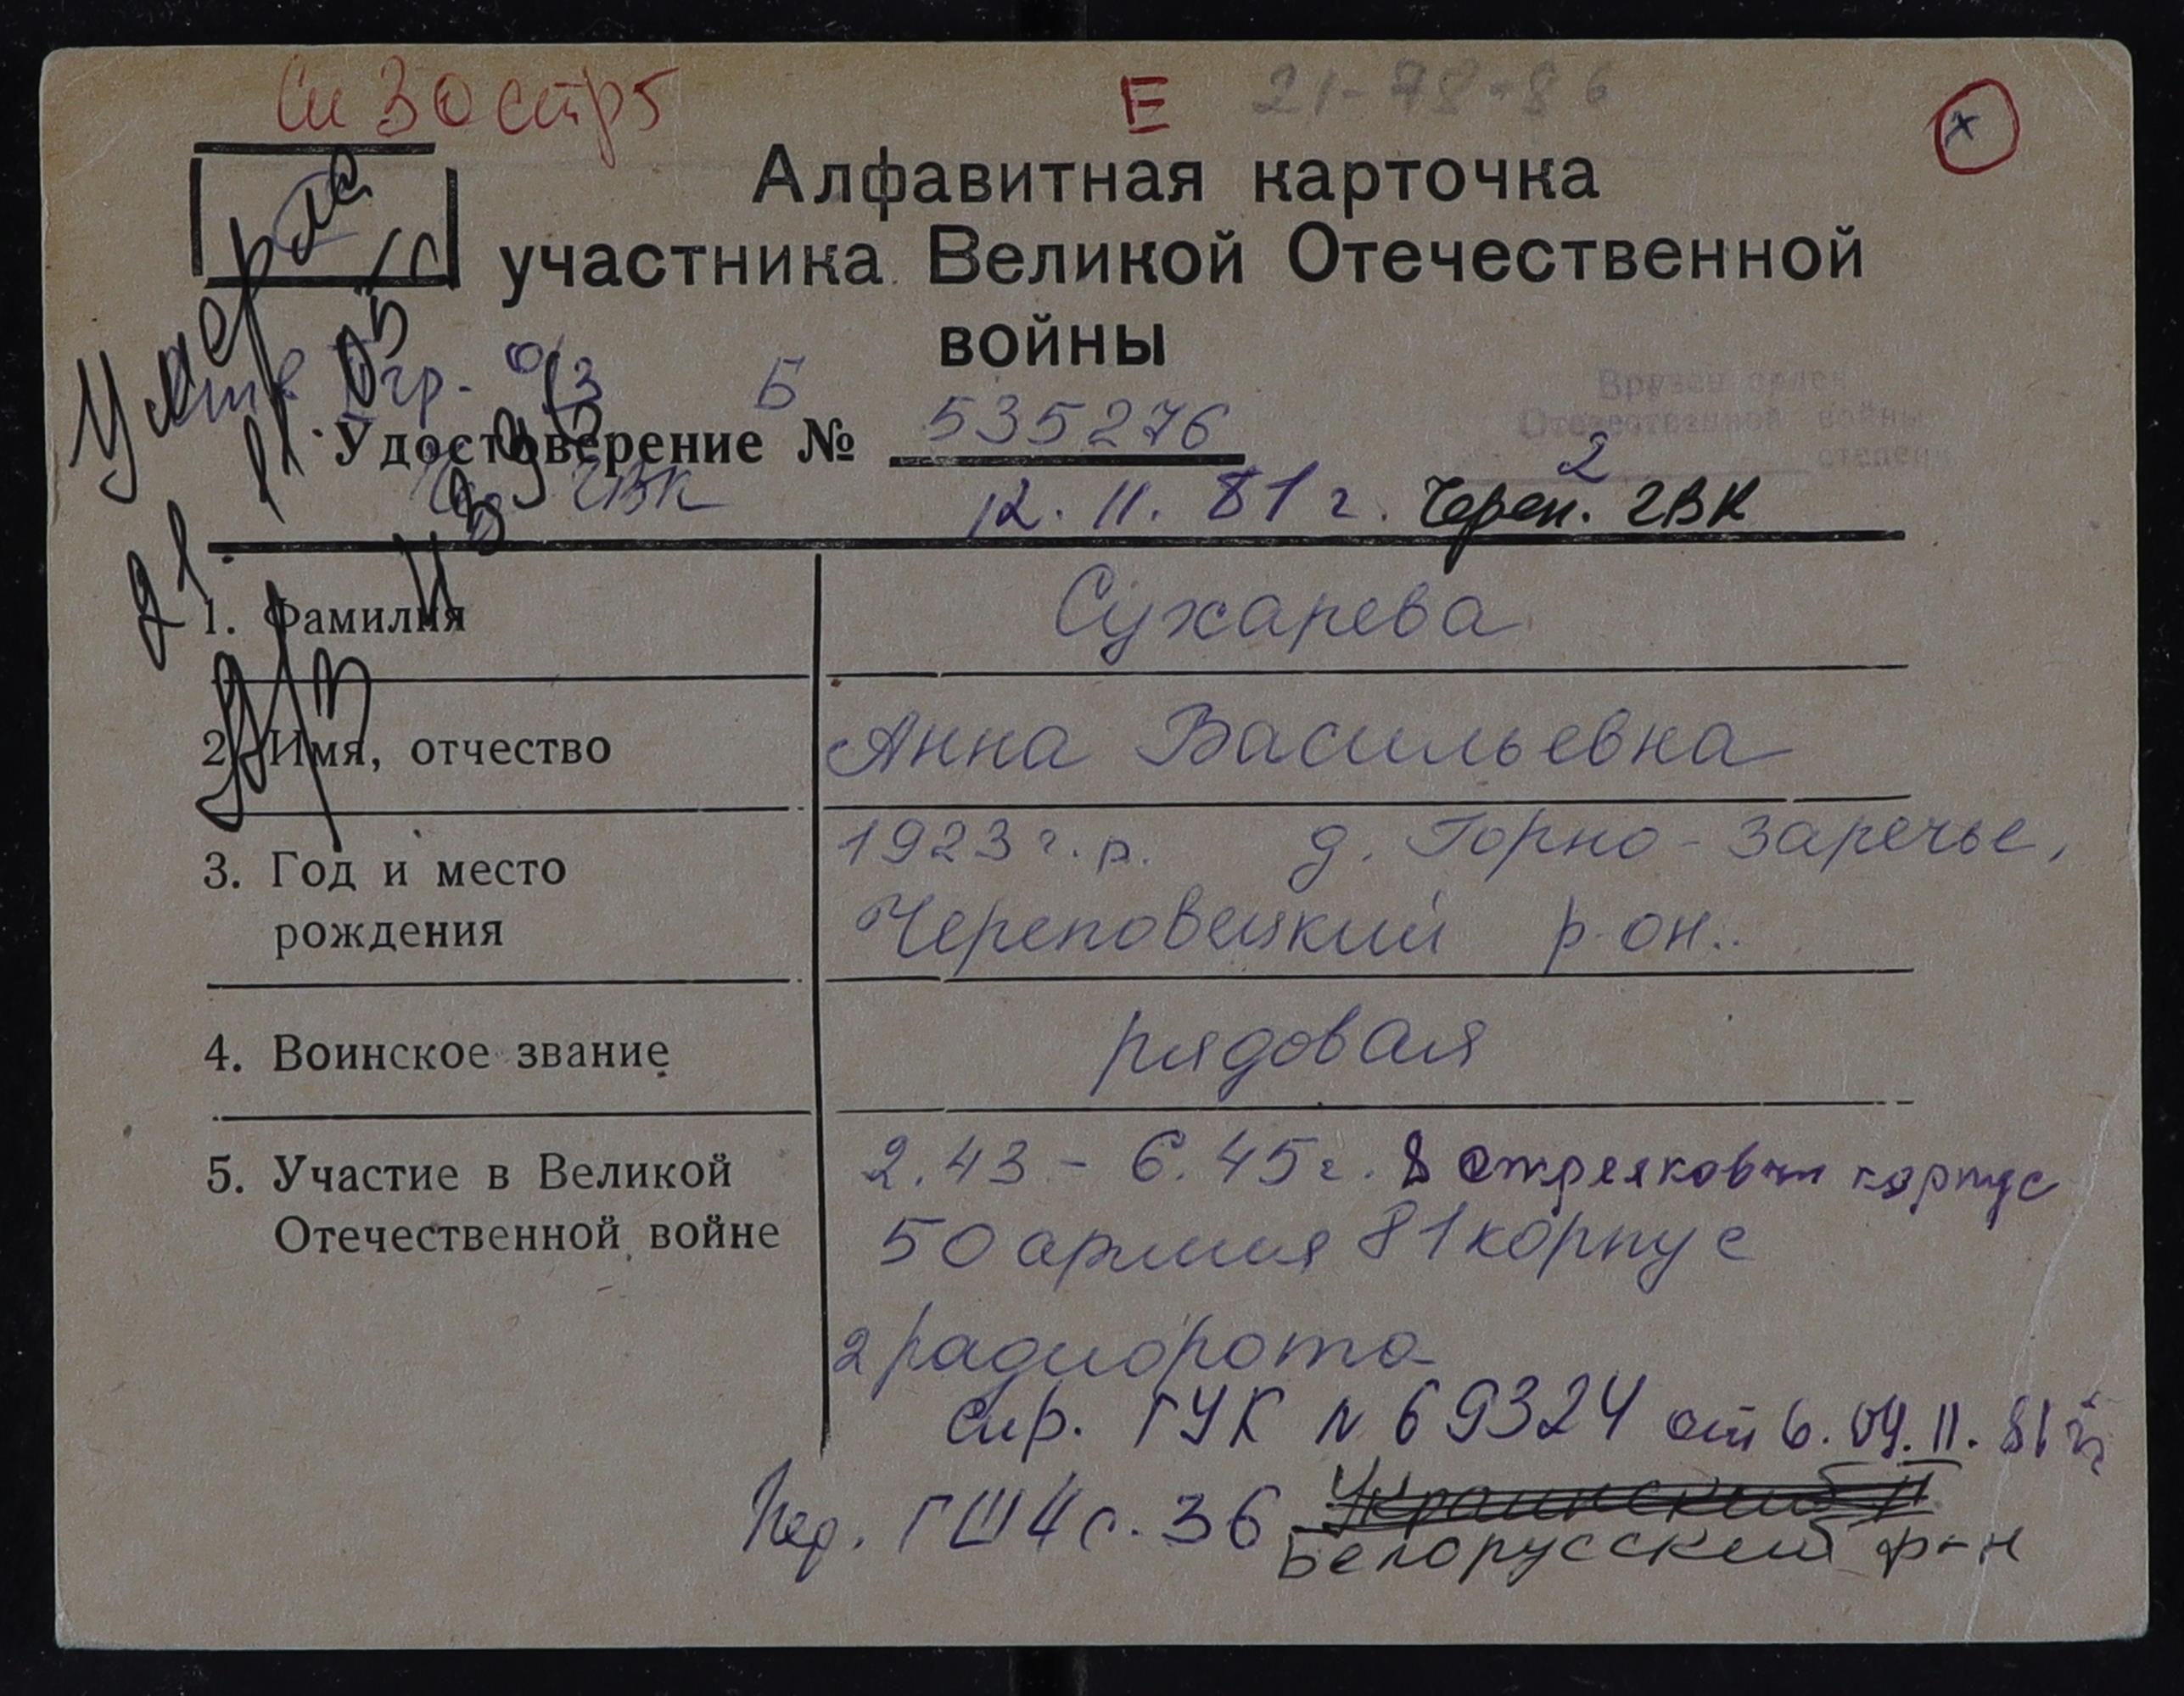 Е 21-78-86
х
Алфавитная карточка
участника Великой Отечественной
войны
Умерла
Вручен орден
Отечественной войны
2 степени
Б
Удостоверение № 535276
ГВК 12.11.81 г. Череп. ГВК
1. Фамилия Сухарева
2. Имя, отчество Анна Васильевна
3. Год и место 1923 г.р. д. Горно-Заречье,
рождения Череповецкий р-он.
4. Воинское звание рядовая
5. Участие в Великой 2.43 - 6.45 г. 8 стрелковый корпус
Отечественной войне 50 армия 81 корпус
2 радиорота
Спр. ГУК № 69324 от 6.
с. 36 Украинский II
Белорусский фр-н